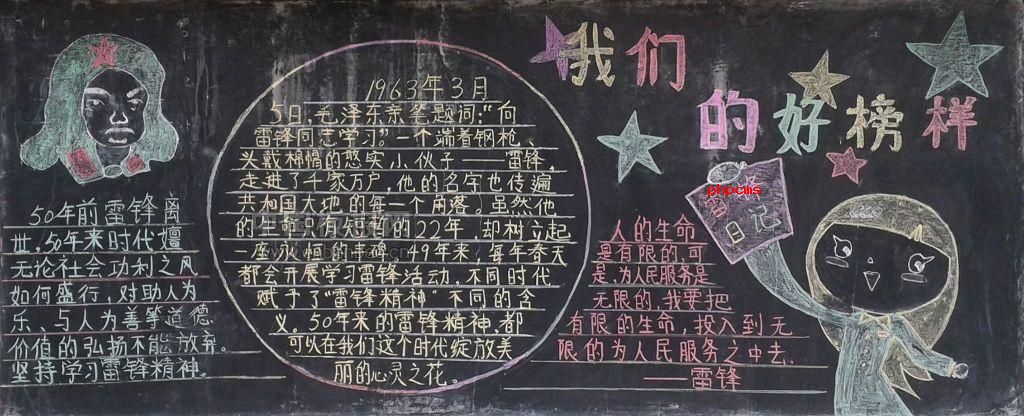 我们
的好榜样
50年前雷锋离
世,50年来时代嬗
无论社会功利之风
如何盛行,对助人为
乐、与人为善等道德
价值的弘扬不能放弃。
坚持学习雷锋精神。
1963年3月
5日,毛泽东亲笔题词:“向
雷锋同志学习”。一个端着钢枪、
头戴棉帽的憨实小伙子——雷锋,
走进了千家万户,他的名字也传遍
共和国大地的每一个角落。虽然他
的生命只有短短的22年,却树立起
一座永恒的丰碑。49年来,每年春天
都会开展学习雷锋活动。不同时代
赋予了“雷锋精神”不同的含
义。50年来的雷锋精神,都
可以在我们这个时代绽放美
丽的心灵之花。
phpcms
日记
人的生命
是有限的,可
是,为人民服务是
无限的,我要把
有限的生命,投入到无
限的为人民服务之中去、
——雷锋